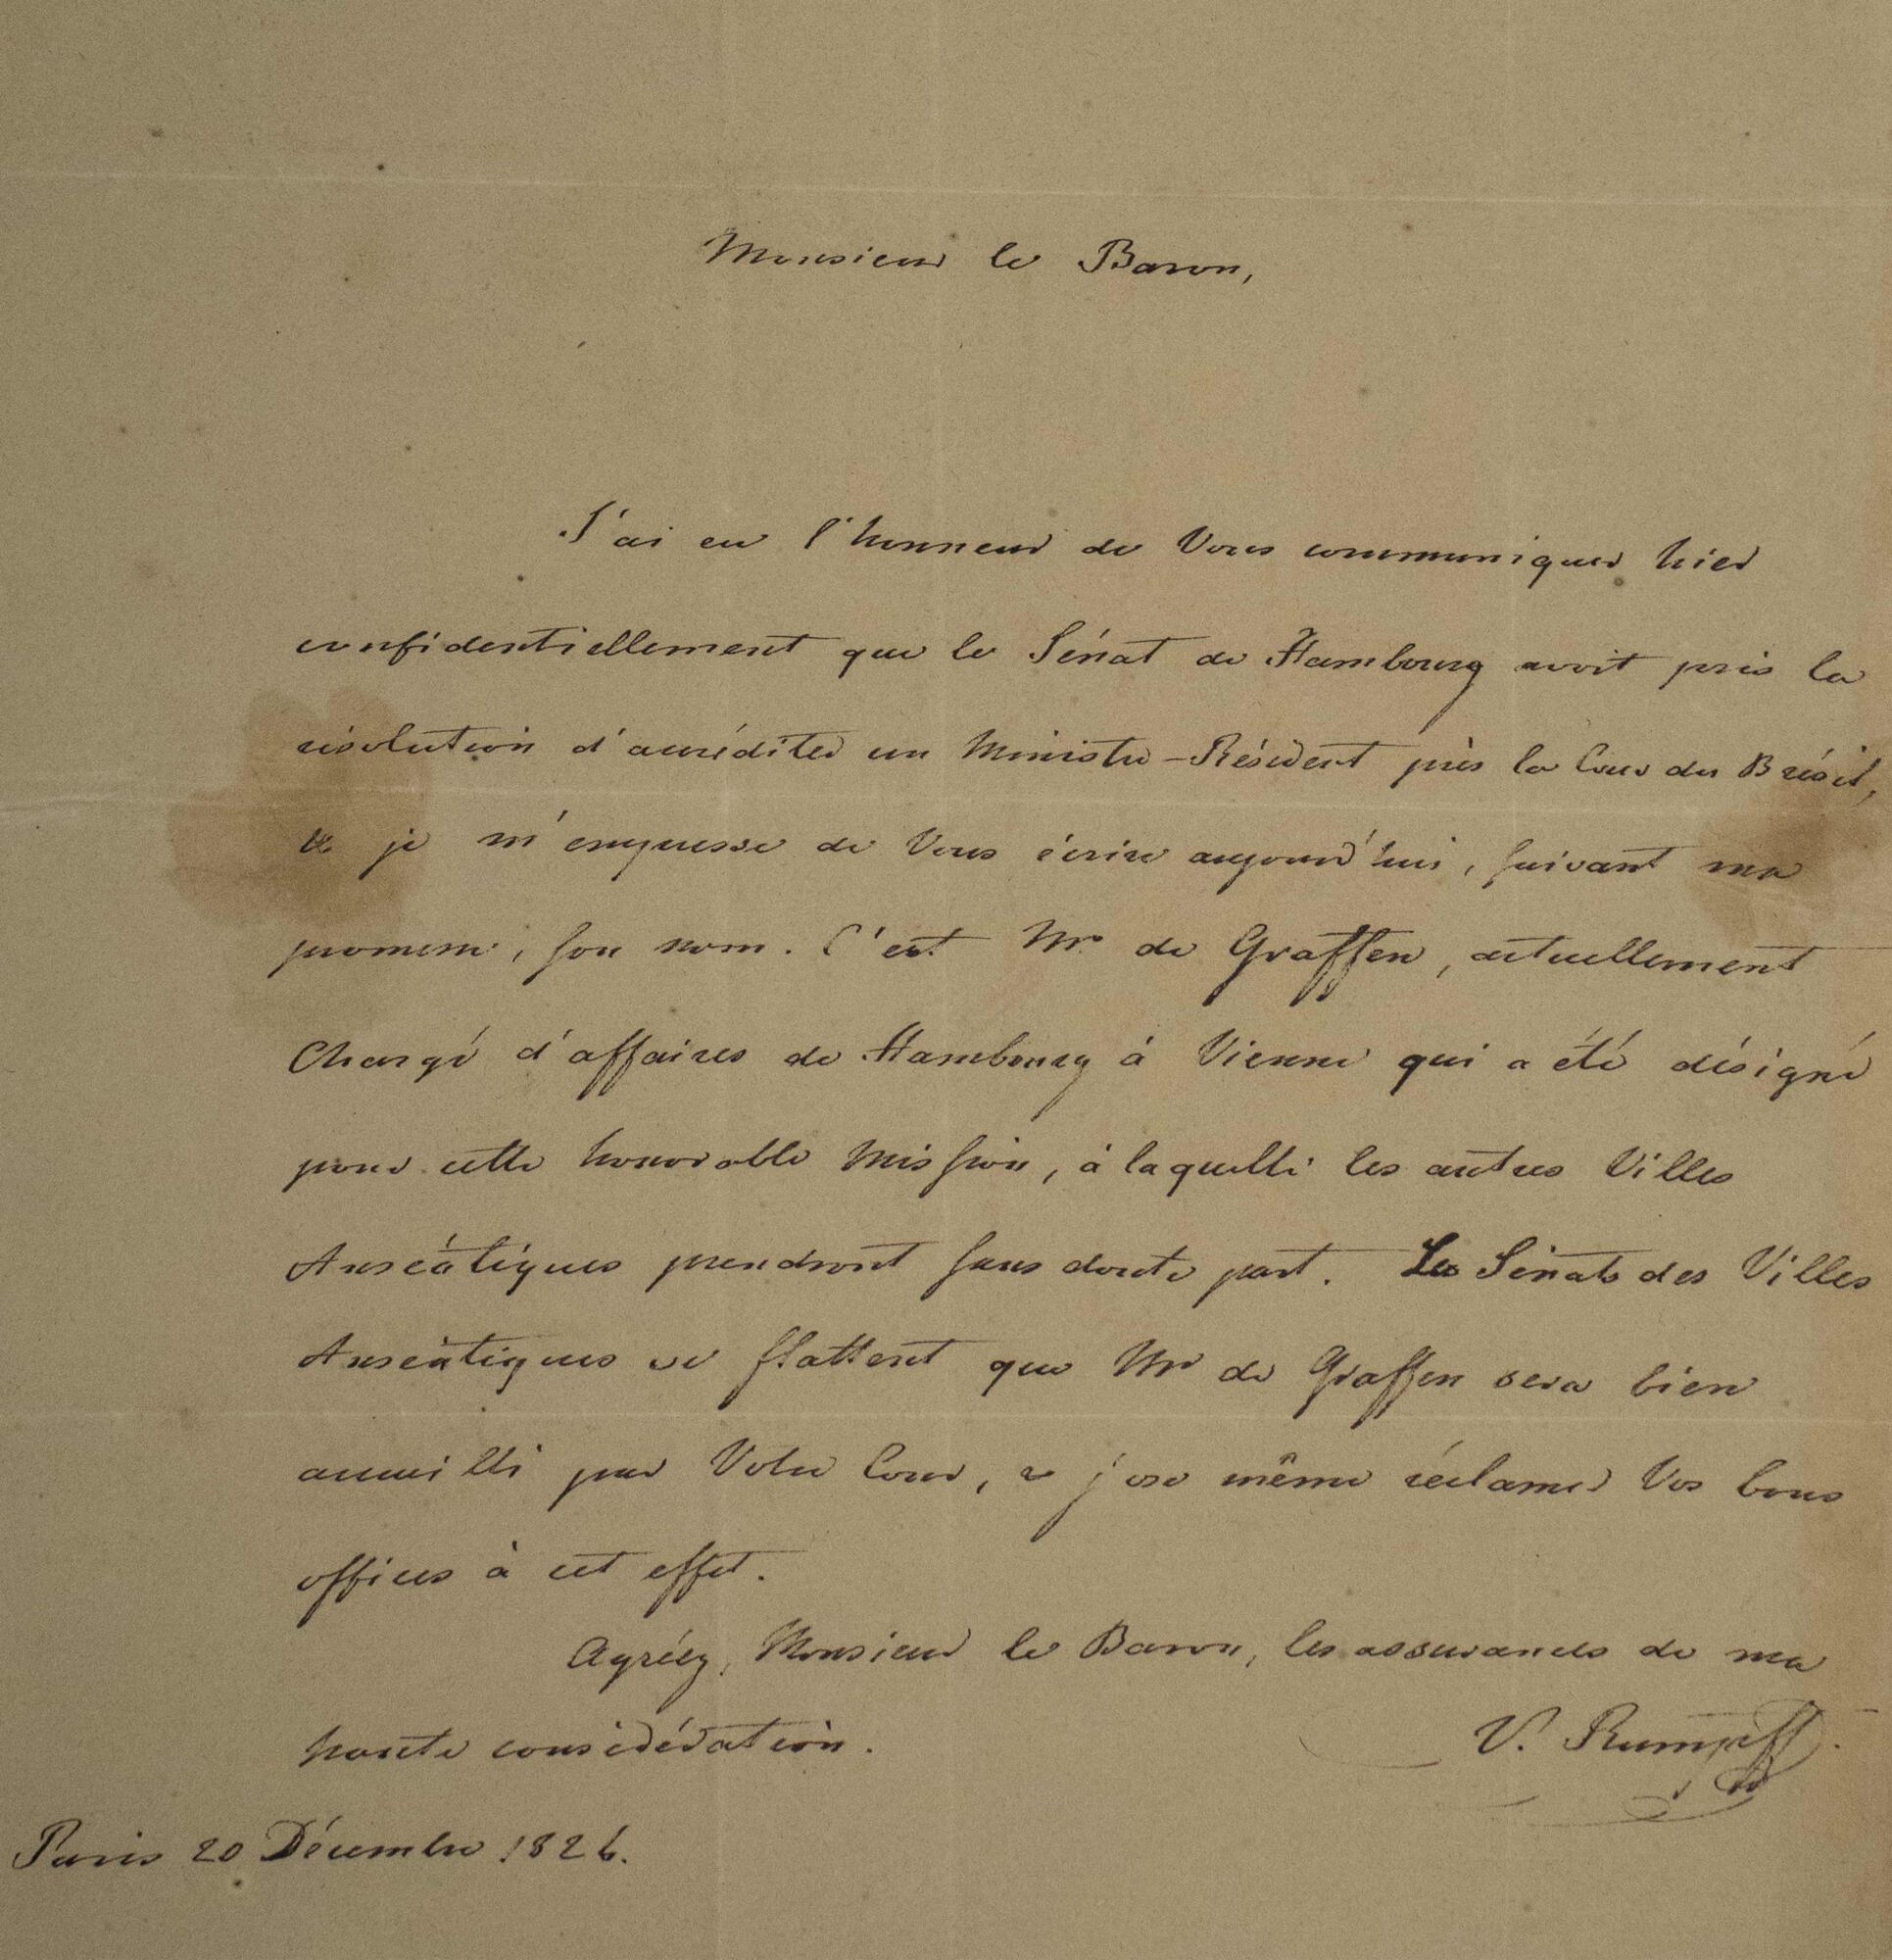 Monsieur le Baron,
J'ai eu l'honneur de Vous communiquer hier
confidentiellement que le Sénat de Hambourg avoit pris la
résolution d'accréditer un Ministre-Résident près la Cour du Brésil,
& je m'empresse de Vous écrire aujourd'hui, suivant ma
promesse, son nom. C'est Mr de Graffen, actuellement
Chargé d'affaires de Hambourg à Vienne qui a été désigné
pour cette honorable Mission, à laquelle les autres Villes
Anséatiques prendront sans doute part. Les Sénats des Villes
Anséatiques se flattent que Mr de Graffen sera bien
accueilli par Votre Cour, & j'ose même réclamer Vos bons
offices à cet effet.
Agréez, Monsieur le Baron, les assurances de ma
haute considération.
V. Rumpff.
Paris 20 Décembre 1826.